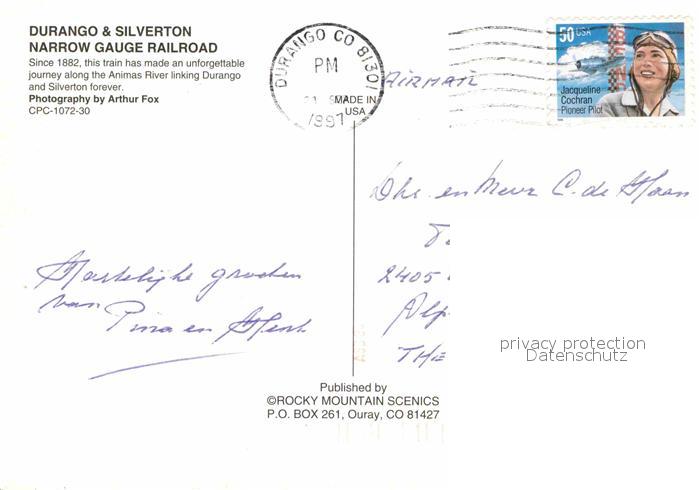 DURANGO & SILVERTON
NARROW GAUGE RAILROAD
Since 1882, this train has made an unforgettable
journey along the Animas River linking Durango
and Silverton forever.
Photography by Arthur Fox
CPC-1072-30
DURANGO CO 81301
PM
1997
MADE IN
USA
AIRMAIL
50 USA
Jacqueline
Cochran
Pioneer Pilot
Dhr. en Mevr C. de Haan
2405
Alp
THE
Hartelijke groeten
van
Pina en Henk
privacy protection
Datenschutz
Published by
©ROCKY MOUNTAIN SCENICS
P.O. BOX 261, Ouray, CO 81427